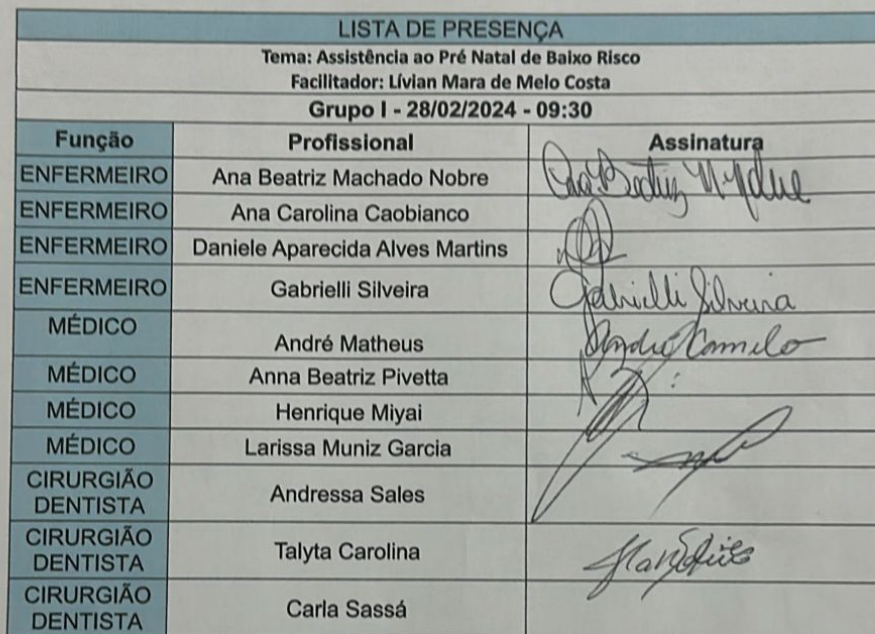 LISTA DE PRESENÇA
Tema: Assistência ao Pré Natal de Baixo Risco
Facilitador: Lívian Mara de Melo Costa
Grupo I - 28/02/2024 - 09:30
Função Profissional Assinatura
ENFERMEIRO Ana Beatriz Machado Nobre
ENFERMEIRO Ana Carolina Caobianco
ENFERMEIRO Daniele Aparecida Alves Martins
ENFERMEIRO Gabrielli Silveira Gabrielli Silveira
MÉDICO André Matheus André Camilo
MÉDICO Anna Beatriz Pivetta
MÉDICO Henrique Miyai
MÉDICO Larissa Muniz Garcia
CIRURGIÃO DENTISTA Andressa Sales
CIRURGIÃO DENTISTA Talyta Carolina
CIRURGIÃO DENTISTA Carla Sassá